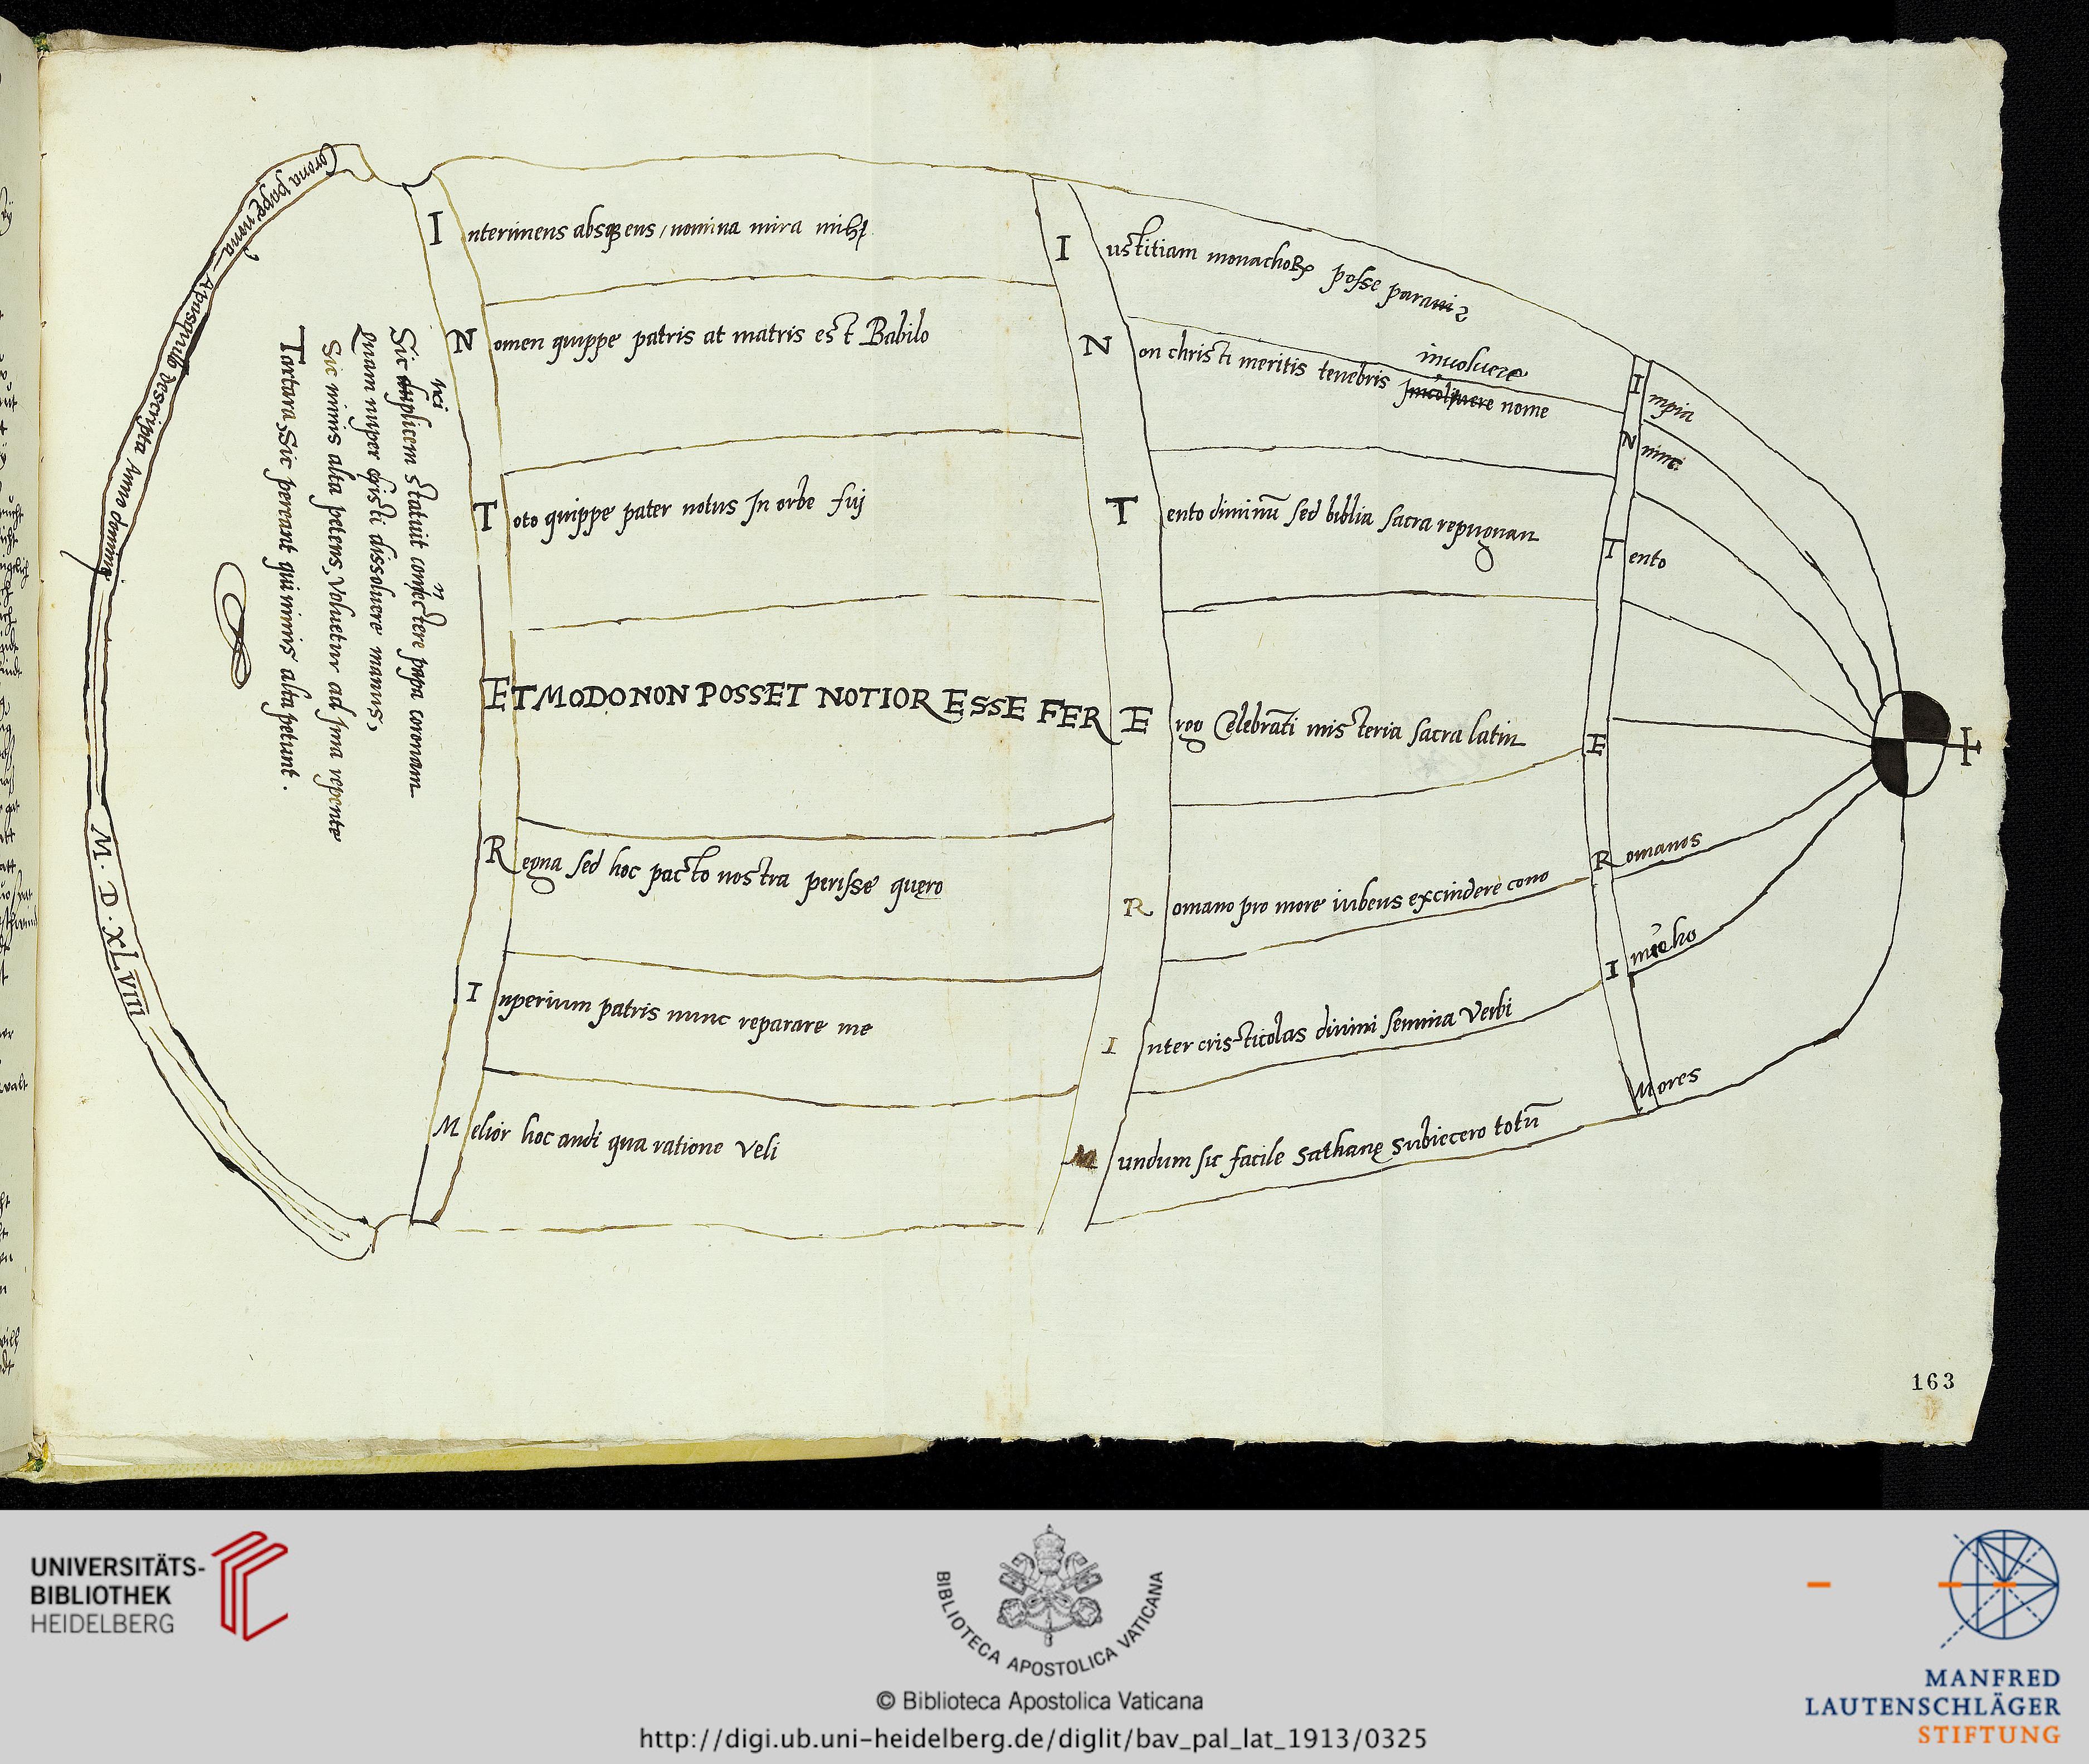 Corona pappe nova Apasquillo descripta Anno domini
M. D. XLVIII
Sic duplicem statuit connectere papa coronam
nci
Quam nuper christi dissoluere manus,
Sic nimis alta petens, Voluetur ad ima repente
Tartara, Sic pereant qui nimis alta petunt.
I nterimens absque ens, nomina mira mihi
N omen quippe patris at matris est Babilo
T oto quippe pater notus In orbe fuj
ET MODO NON POSSET NOTIOR ESSE FER
R egna sed hoc pacto nostra perisse quero
I nperium patris nunc reparare me
M elior hoc andi qua ratione veli
I ustitiam monachoR posse parani
N on christi meritis tenebris involuere nome
T ento diuinũ sed biblia sacra repugnan
E rgo Celebrãti misteria sacra latin
R omano pro more iubens excindere cono
I nter cristicolas divini semina Verbi
M undum sic facile Sathanę Subiecero totũ
I mpia
N unc
T ento
E
R omanos
I
Mores
163
UNIVERSITÄTS-
BIBLIOTHEK
HEIDELBERG
BIBLIOTECA APOSTOLICA VATICANA
© Biblioteca Apostolica Vaticana
http://digi.ub.uni-heidelberg.de/diglit/bav_pal_lat_1913/0325
MANFRED
LAUTENSCHLÄGER
STIFTUNG